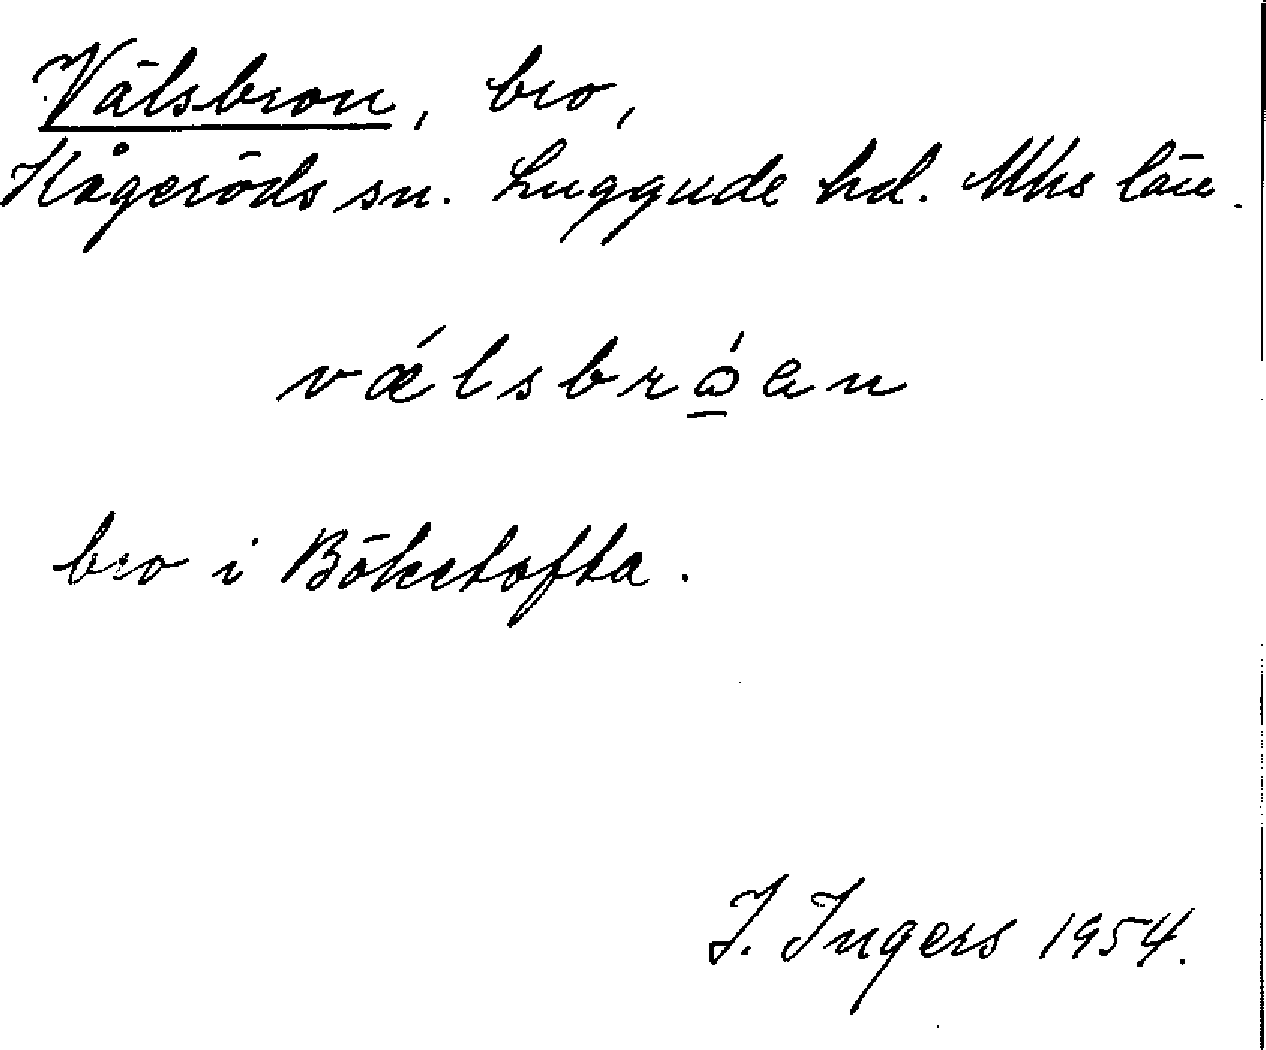 Välsbron, bro,
Kågeröds sn. Luggude hd. Mhs län.
vǽlsbrɷ̱́an
bro i Böketofta.
I. Ingers 1954.